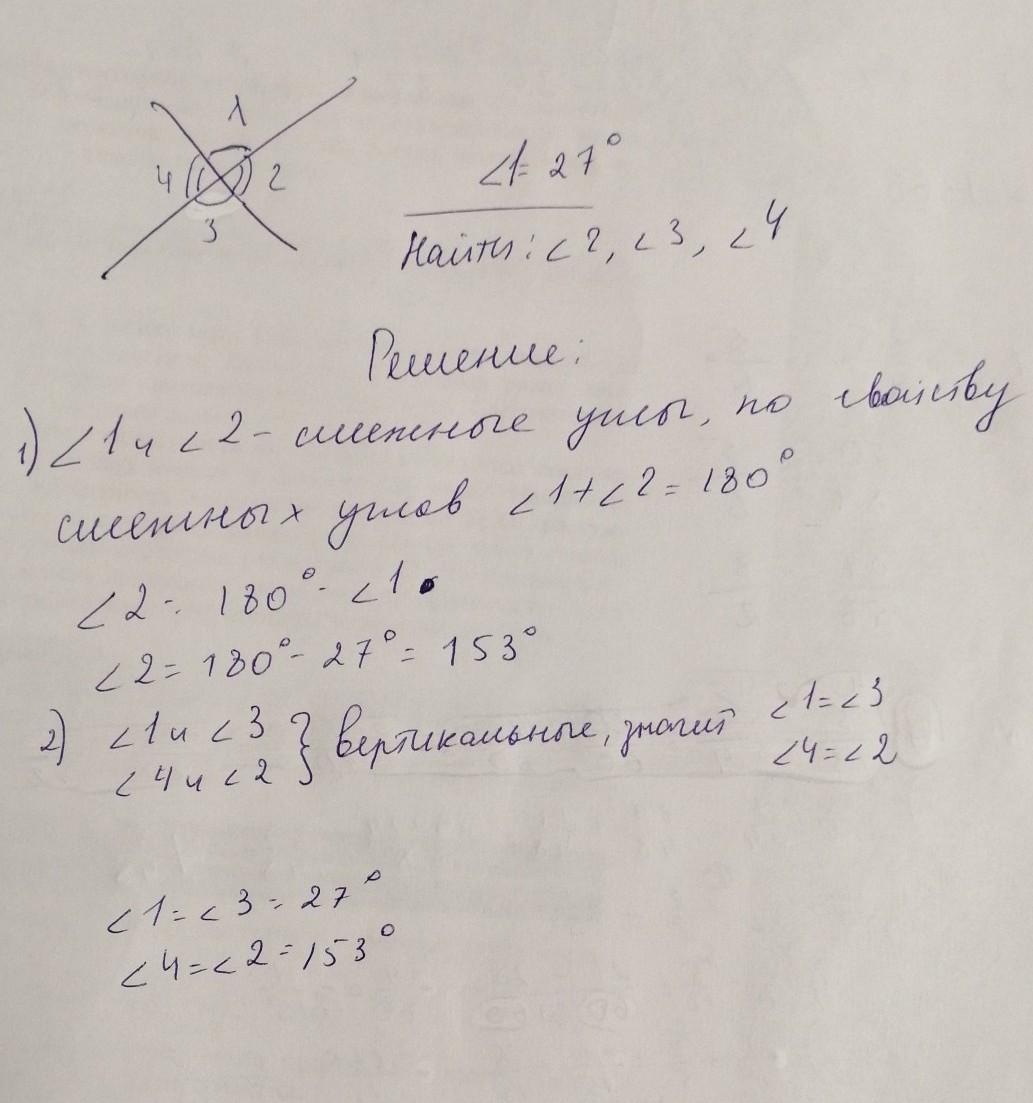 1
4
2
3
∠1 = 27°
Найти: ∠2, ∠3, ∠4
Решение:
1) ∠1 и ∠2 - смежные углы, по свойству
смежных углов ∠1+∠2 = 180°
∠2 = 180° - ∠1
∠2 = 180° - 27° = 153°
2) ∠1 и ∠3 } вертикальные, значит ∠1=∠3
∠4 и ∠2 ∠4=∠2
∠1 = ∠3 = 27°
∠4 = ∠2 = 153°